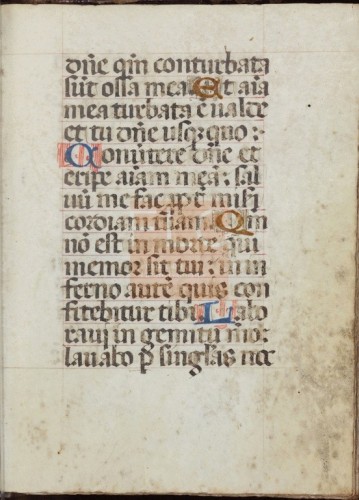 dn̄e qm̄ conturbata
sūt ossa mea. Et aīa
mea turbata ē ualde
et tu dn̄e usq; quo :·
Conūtere dn̄e et
eripe aīam meā : sal
uū me fac ap̄t̄ misẜi
cordiam tūam. Qm̄
nō est in morte qui
memor sit tui : in in
ferno autē quis con
fitebitur tibi. Labo
raui in gemitū mō :
lauabo p̄ singlās noc